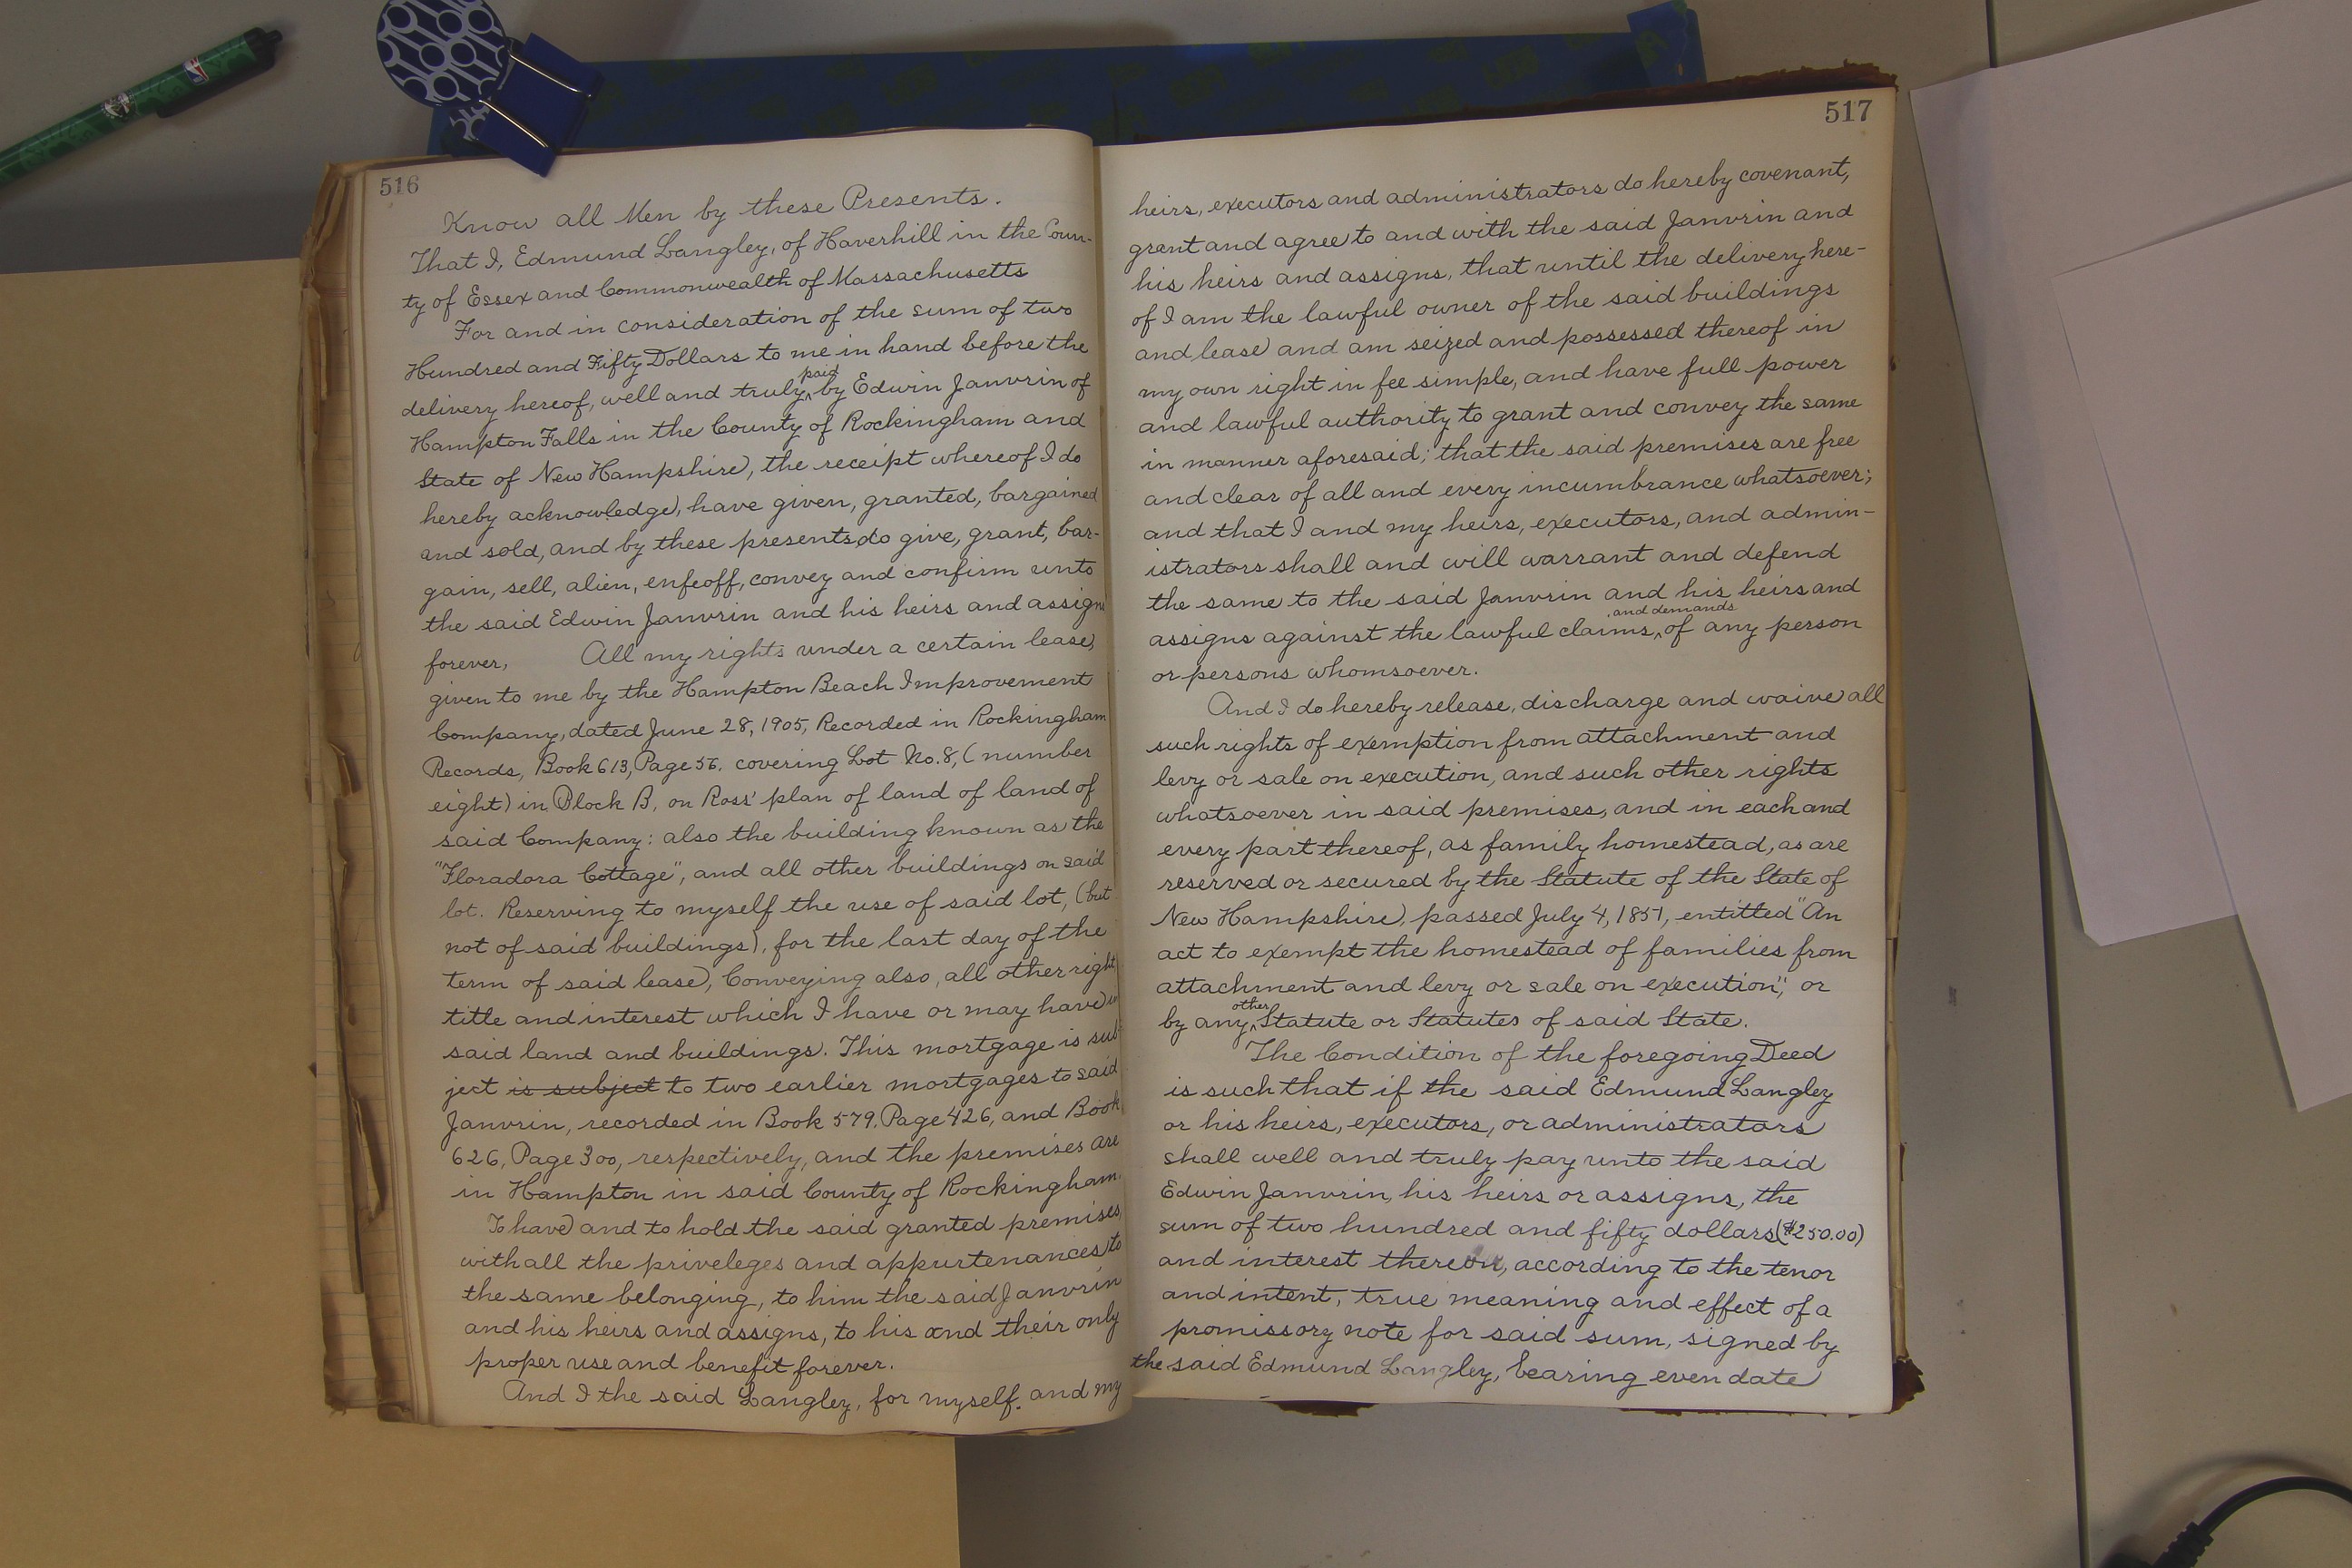 516
Know all Men by these Presents.
That I, Edmund Langley, of Haverhill in the Coun-
ty of Essex and Commonwealth of Massachusetts
For and in consideration of the sum of two
Hundred and Fifty Dollars to me in hand before the
delivery hereof, well and truly paid by Edwin Janvrin of
Hampton Falls in the County of Rockingham and
State of New Hampshire, the receipt whereof I do
hereby acknowledge, have given, granted, bargained
and sold, and by these presents, do give, grant, bar-
gain, sell, alien, enfeoff, convey and confirm unto
the said Edwin Janvrin and his heirs and assigns
forever, All my rights under a certain lease,
given to me by the Hampton Beach Improvement
Company, dated June 28, 1905, Recorded in Rockingham
Records, Book 613, Page 56. covering Lot No. 8, (number
eight) in Block B, on Ross' plan of land of land of
said Company: also the building known as the
"Floradora Cottage", and all other buildings on said
lot. Reserving to myself the use of said lot, (but
not of said buildings), for the last day of the
term of said lease, Conveying also, all other right
title and interest which I have or may have in
said land and buildings. This mortgage is sub-
ject is subject to two earlier mortgages to said
Janvrin, recorded in Book 579. Page 426, and Book
626, Page 300, respectively, and the premises are
in Hampton in said County of Rockingham.
To have and to hold the said granted premises,
with all the priveleges and appurtenances to
the same belonging, to him the said Janvrin
and his heirs and assigns, to his and their only
proper use and benefit forever.
And I the said Langley, for myself. and my
517
heirs, executors and administrators do hereby covenant,
grant and agree to and with the said Janvrin and
his heirs and assigns, that until the delivery here-
of I am the lawful owner of the said buildings
and lease and am seized and possessed thereof in
my own right in fee simple, and have full power
and lawful authority to grant and convey the same
in manner aforesaid; that the said premises are free
and clear of all and every incumbrance whatsoever;
and that I and my heirs, executors, and admin-
istrators shall and will warrant and defend
the same to the said Janvrin and his heirs and
assigns against the lawful claims, and demands of any person
or persons whomsoever.
And I do hereby release, discharge and waive all
such rights of exemption from attachment and
levy or sale on execution, and such other rights
whatsoever in said premises, and in each and
every part thereof, as family homestead, as are
reserved or secured by the Statute of the State of
New Hampshire, passed July 4, 1851, entitled "An
act to exempt the homestead of families from
attachment and levy or sale on execution", or
by any other Statute or Statutes of said State.
The Condition of the foregoing Deed
is such that if the said Edmund Langley
or his heirs, executors, or administrators
shall well and truly pay unto the said
Edwin Janvrin, his heirs or assigns, the
sum of two hundred and fifty dollars ($250.00)
and interest thereon, according to the tenor
and intent, true meaning and effect of a
promissory note for said sum, signed by
the said Edmund Langley, bearing even date